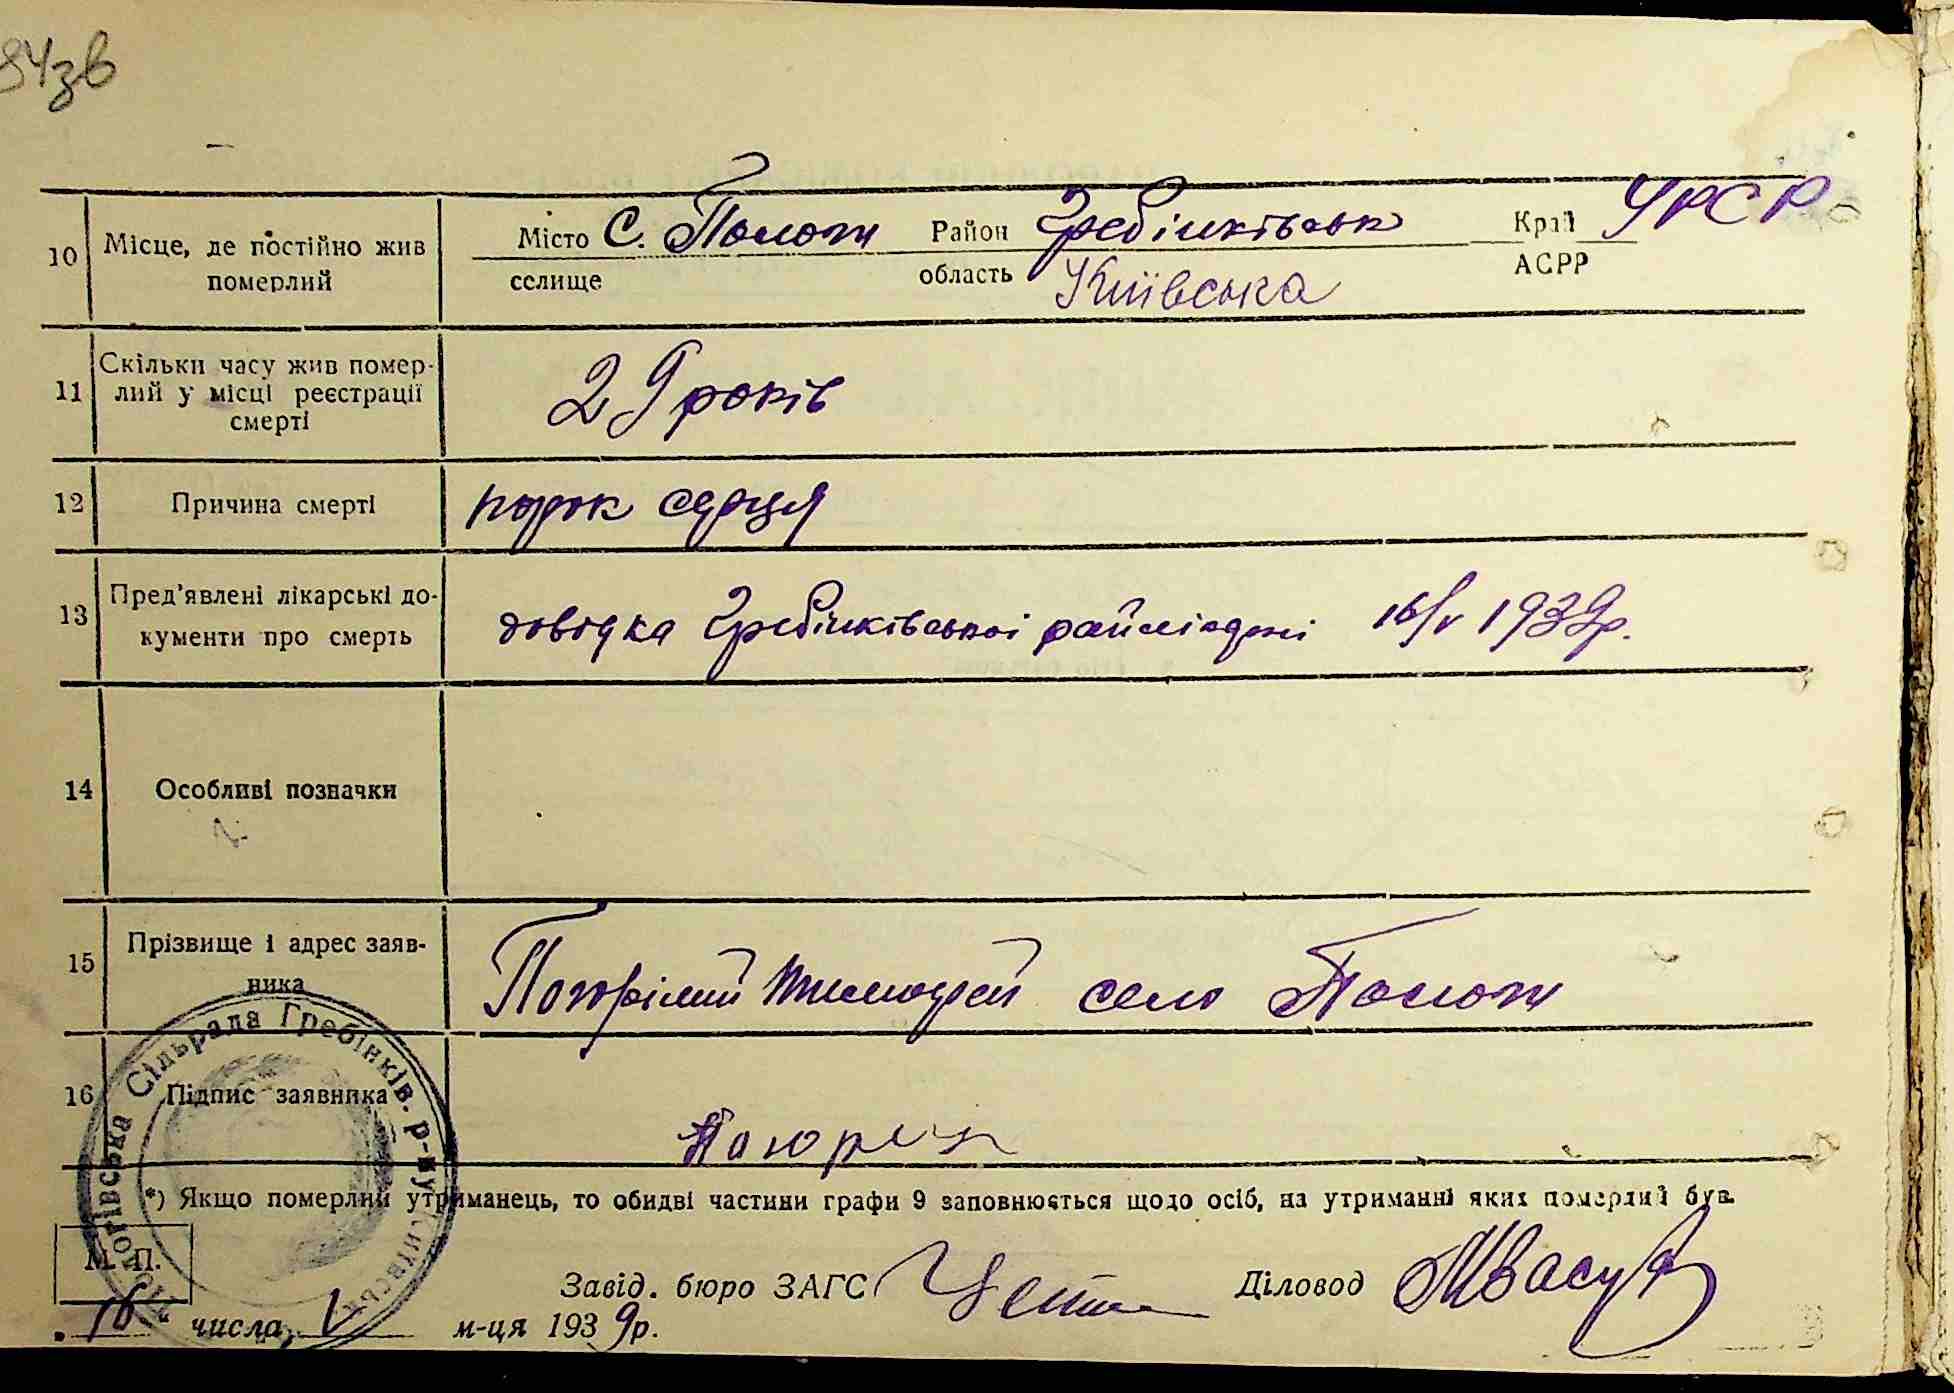 94зв
10 Місце, де постійно жив померлий
Місто С. Пологи Район Гребінківськ Край УРСР
селище область Київська АСРР
11 Скільки часу жив помер-
лий у місці реєстрації
смерті
29 років
12 Причина смерті порок серця
13 Пред'явлені лікарські до-
кументи про смерть
довідка Гребінківської 16/V 1939р.
14 Особливі позначки
15 Прізвище і адрес заяв-
ника
Погорілий Тимофей село Пологи
16 Підпис заявника
*) Якщо померлий утриманець, то обидві частини графи 9 заповнюється щодо осіб, на утриманні яких померлий був.
М. П.
Завід. бюро ЗАГС Діловод
16 числа V м-ця 1939р.
Пологівська Сільрада Гребінків. р-ну Київськ